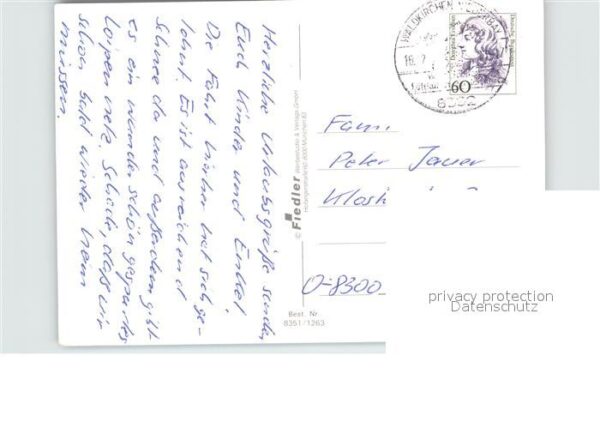 Herzliche Urlaubsgrüße senden
Euch Kinder und Enkel
Die Fahrt hierher hat sich ge-
lohnt. Es ist ausreichend
Schnee da und außerdem gibt
es ein wunderschön gespurtes
Loipennetz. Schade, daß wir
schon bald wieder heim
müssen.
© Fiedler
Best. Nr.
8351/1263
WALDKIRCHEN, NIEDERBAY
16.
8392
Deutsche Bundespost
60
Fam.
Peter Jauer
O-8300
privacy protection
Datenschutz